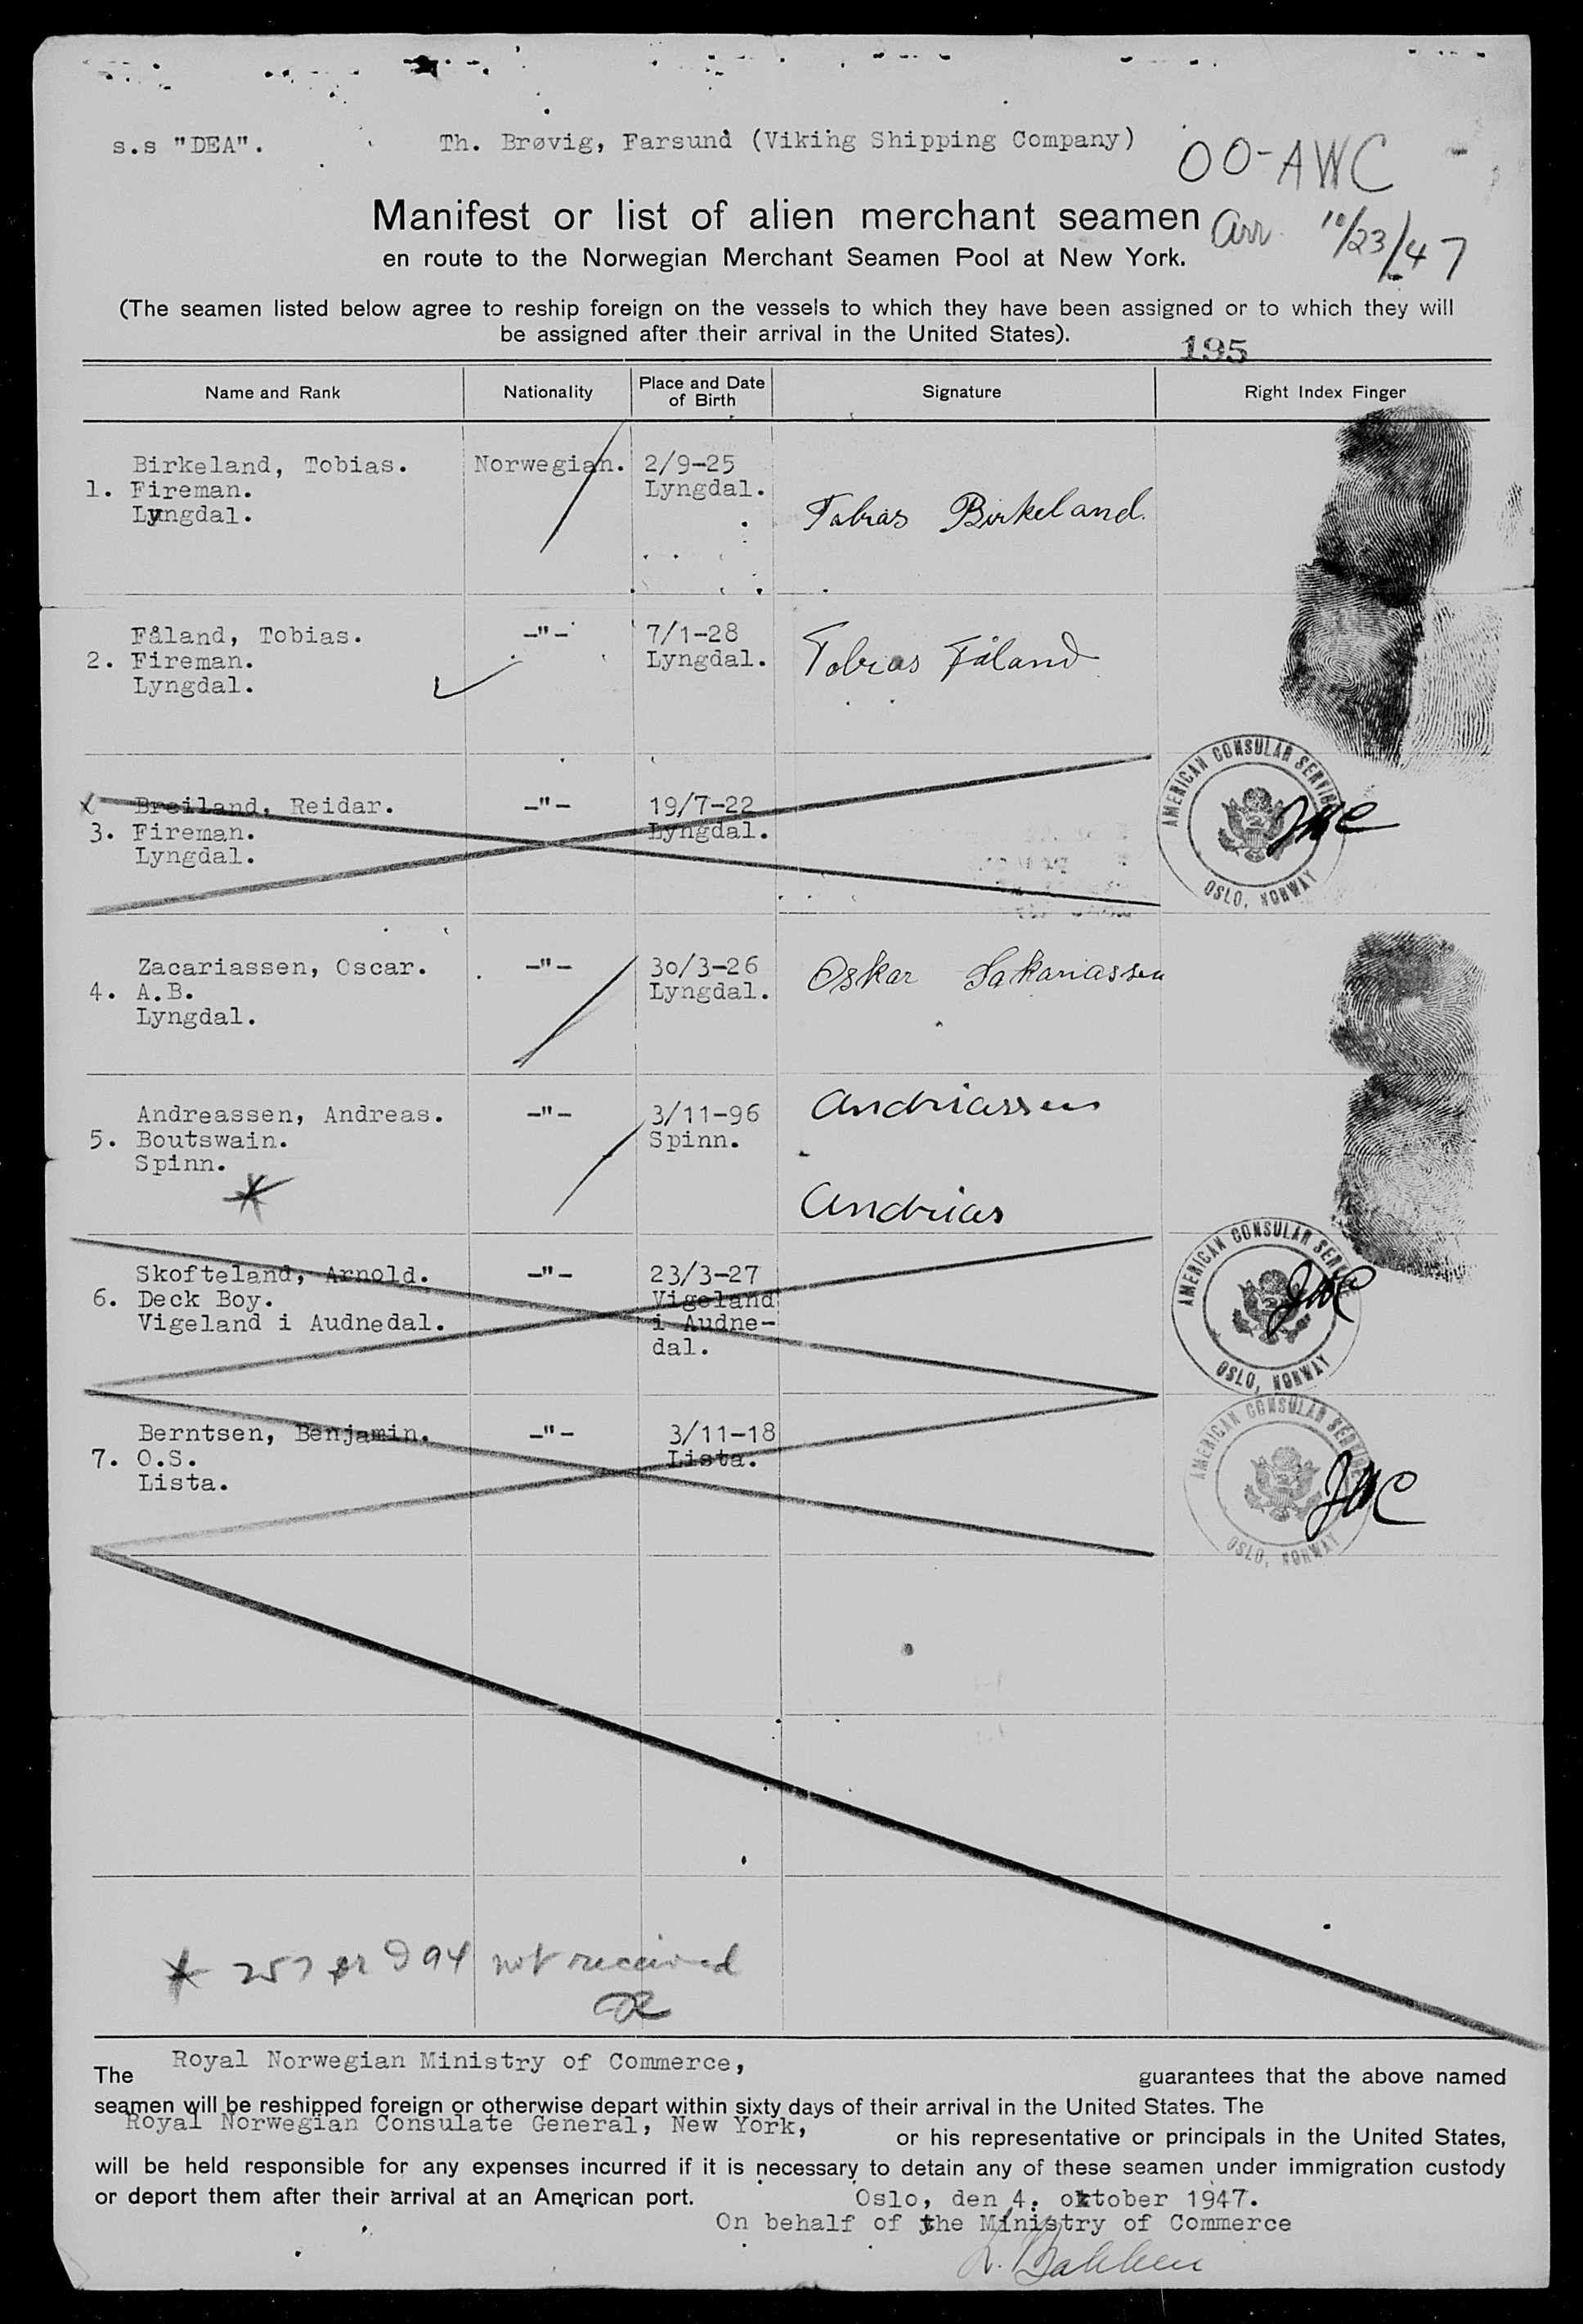 s.s "DEA".
Th. Brøvig, Farsund (Viking Shipping Company)
OO-AWC
Manifest or list of alien merchant seamen
Arr. 10/23/47
en route to the Norwegian Merchant Seamen Pool at New York.
(The seamen listed below agree to reship foreign on the vessels to which they have been assigned or to which they will
be assigned after their arrival in the United States).
195
Name and Rank Nationality Place and Date of Birth Signature Right Index Finger
Birkeland, Tobias. Norwegian. 2/9-25
1. Fireman. Lyngdal.
Lyngdal.
Tobias Birkeland.
Fåland, Tobias. -"- 7/1-28
2. Fireman. Lyngdal.
Lyngdal.
Tobias Fåland
Breiland, Reidar. -"- 19/7-22
3. Fireman. Lyngdal.
Lyngdal.
AMERICAN CONSULAR SERVICE
OSLO, NORWAY
Zacariassen, Oscar. -"- 30/3-26
4. A.B. Lyngdal.
Lyngdal.
Oskar Sakariassen
Andreassen, Andreas. -"- 3/11-96
5. Boutswain. Spinn.
Spinn.
Andriassen
Andrias
Skofteland, Arnold. -"- 23/3-27
6. Deck Boy. Vigeland
Vigeland i Audnedal. i Audne-
dal.
AMERICAN CONSULAR SERVICE
OSLO, NORWAY
Berntsen, Benjamin. -"- 3/11-18
7. O.S. Lista.
Lista.
AMERICAN CONSULAR SERVICE
OSLO, NORWAY
257 or 794 not received
The Royal Norwegian Ministry of Commerce, guarantees that the above named
seamen will be reshipped foreign or otherwise depart within sixty days of their arrival in the United States. The
Royal Norwegian Consulate General, New York, or his representative or principals in the United States,
will be held responsible for any expenses incurred if it is necessary to detain any of these seamen under immigration custody
or deport them after their arrival at an American port. Oslo, den 4. oktober 1947.
On behalf of the Ministry of Commerce